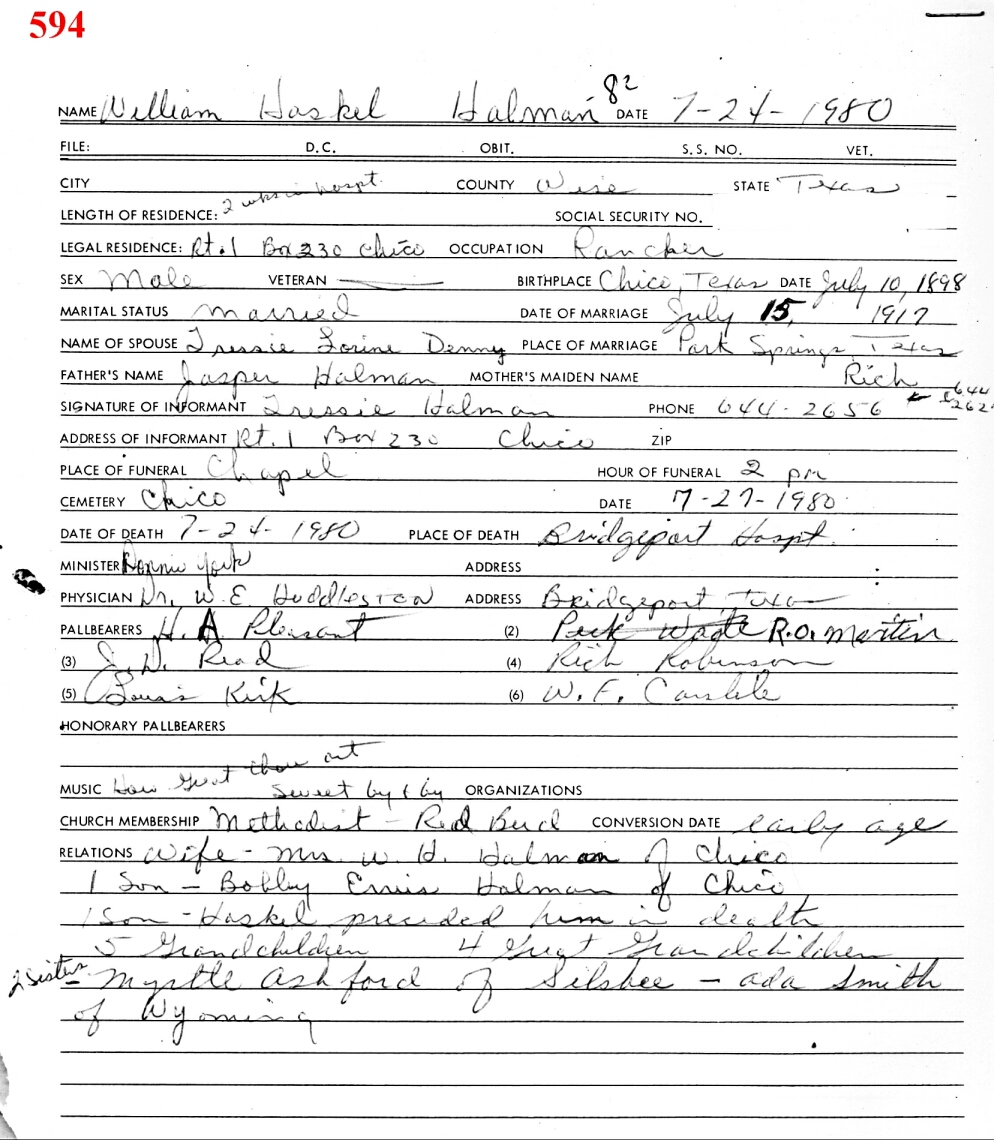 594
NAME William Haskel Halman 82 DATE 7-24-1980
FILE: D.C. OBIT. S.S. NO. VET.
CITY COUNTY Wise STATE Texas
LENGTH OF RESIDENCE: 2 wks in hospt. SOCIAL SECURITY NO.
LEGAL RESIDENCE: Rt. 1 Box 230 Chico OCCUPATION Rancher
SEX Male VETERAN BIRTHPLACE Chico, Texas DATE July 10, 1898
MARITAL STATUS married DATE OF MARRIAGE July 15, 1917
NAME OF SPOUSE Tressie Lorine Denny PLACE OF MARRIAGE Park Springs, Texas
FATHER'S NAME Jasper Halman MOTHER'S MAIDEN NAME Rich
SIGNATURE OF INFORMANT Tressie Halman PHONE 644-2656 644 262
ADDRESS OF INFORMANT Rt. 1 Box 230 Chico ZIP
PLACE OF FUNERAL Chapel HOUR OF FUNERAL 2 pm
CEMETERY Chico DATE 7-27-1980
DATE OF DEATH 7-24-1980 PLACE OF DEATH Bridgeport Hospt.
MINISTER York ADDRESS
PHYSICIAN Dr. W. E. Huddleston ADDRESS Bridgeport, Texas
PALLBEARERS H. A. Pleasant (2) Peck Wade R.O. Martin
(3) J. D. Read (4) Rich Robinson
(5) Louis Kirk (6) W. F. Carlile
HONORARY PALLBEARERS
MUSIC How Great thou art
Sweet by & by ORGANIZATIONS
CHURCH MEMBERSHIP Methodist - Red Bud CONVERSION DATE early age
RELATIONS Wife - Mrs. W. H. Halman of Chico
1 Son - Bobby Ennis Halman of Chico
1 Son - Haskel preceded him in death
5 Grandchildren 4 Great Grandchildren
2 Sisters - Myrtle Ashford of Silsbee - Ada Smith
of Wyoming